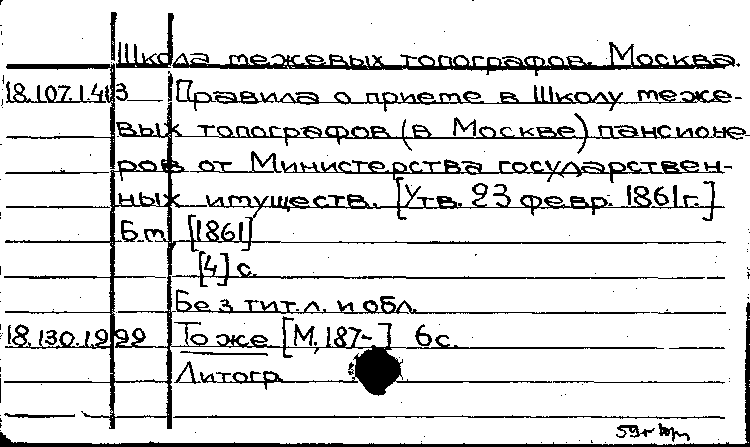 Школа межевых топографов. Москва.
18.107.1.413 Правила о приеме в Школу меже-
вых топографов (в Москве) пансионе-
ров от Министерства государствен-
ных имуществ. [Утв. 23 февр. 1861 г.]
Б.м., [1861]
[4] с.
Без тит.л. и обл.
18.130.1.999 То же [М, 187-] 6 с.
Литогр.
59г